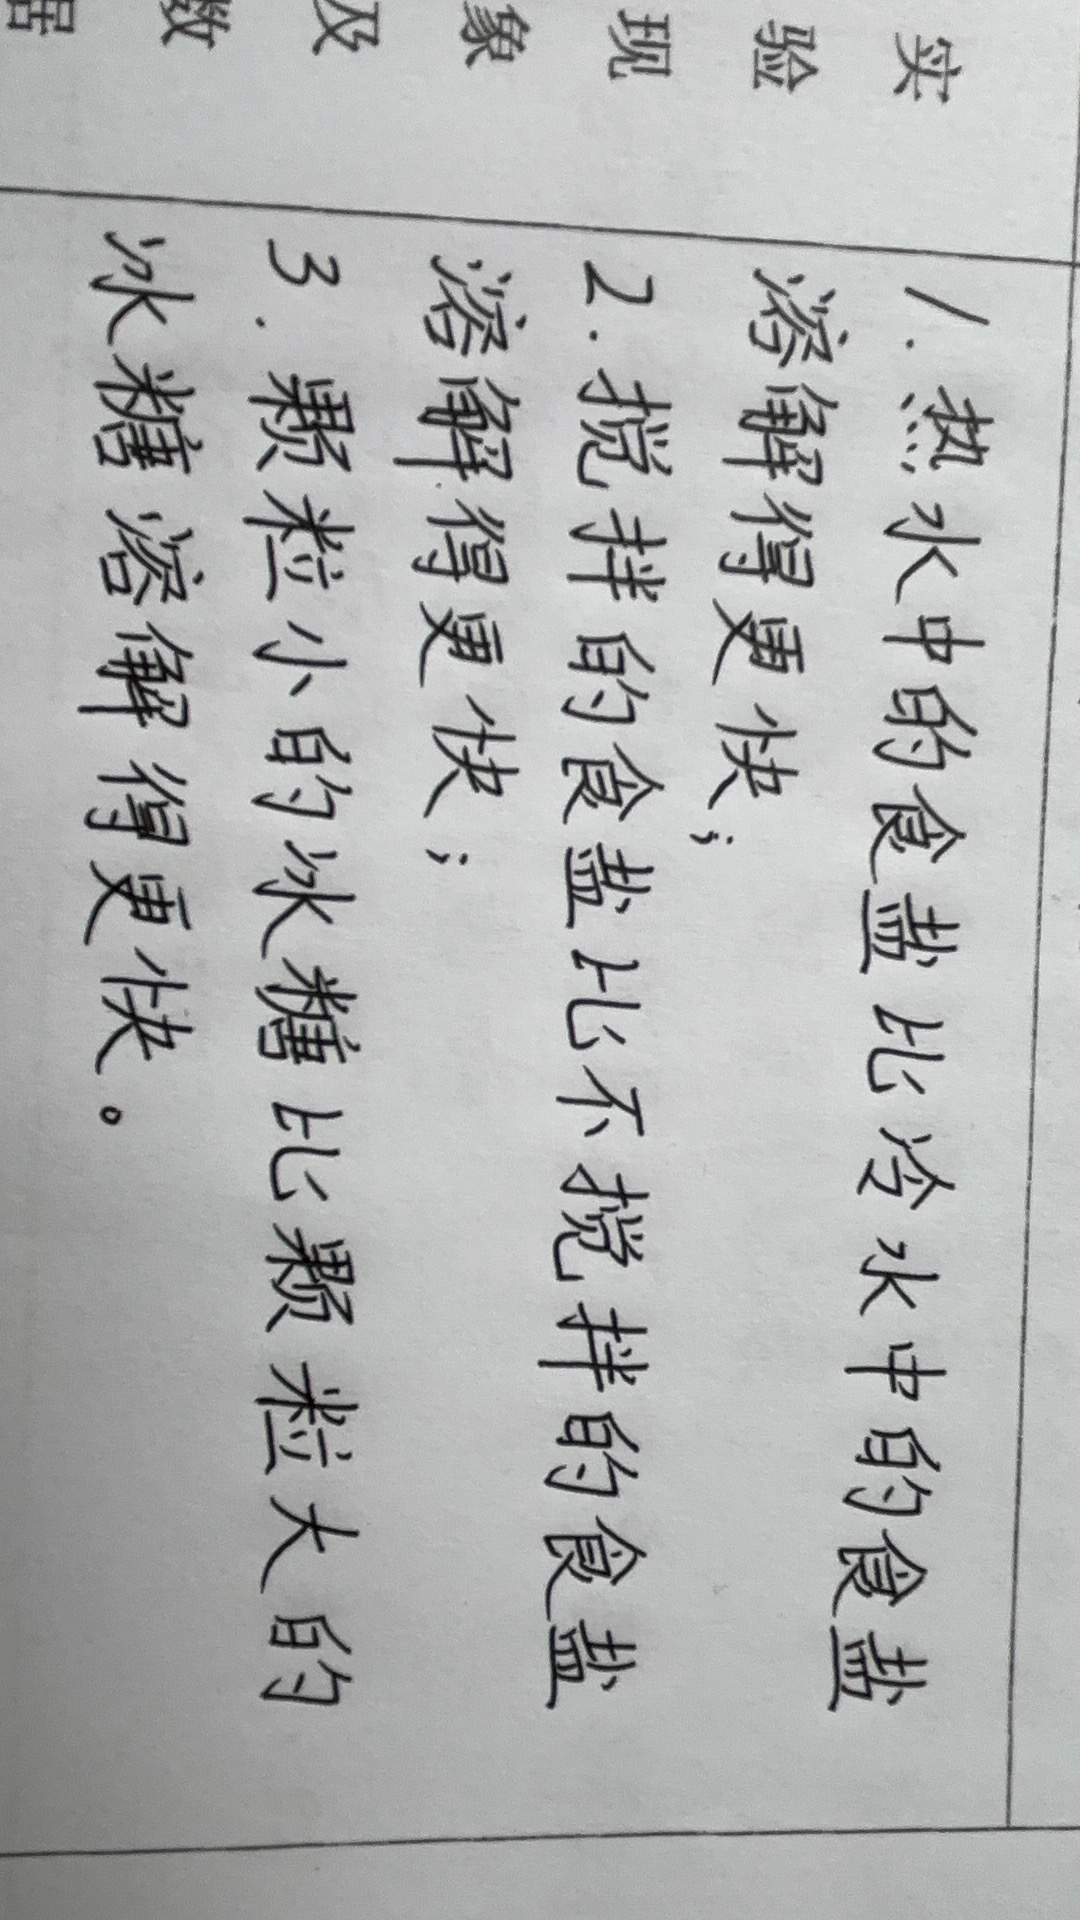 实
验
现
象
及
数
据
1.热水中的食盐比冷水中的食盐
溶解得更快;
2.搅拌的食盐比不搅拌的食盐
溶解得更快;
3.颗粒小的冰糖比颗粒大的
冰糖溶解得更快。